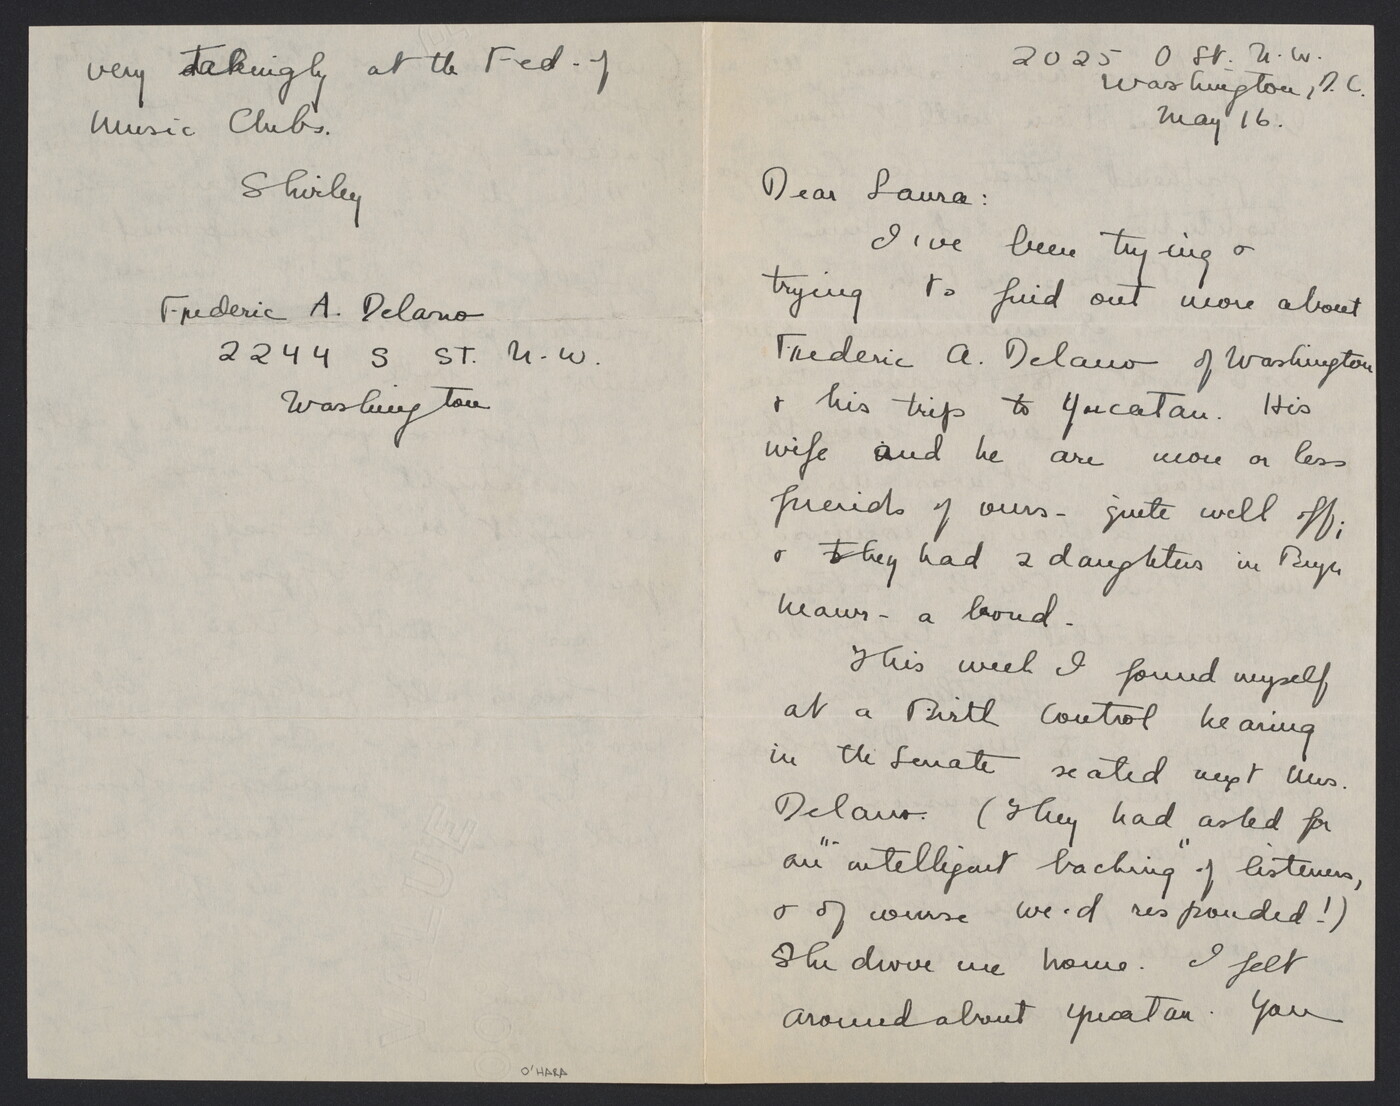 very takingly at the Fed. of
Music Clubs.
Shirley
Frederic A. Delano
2244 S St. N.W.
Washington
O'HARA
2025 O St. N.W.
Washington, D.C.
May 16.
Dear Laura:
I've been trying &
trying to find out more about
Frederic A. Delano of Washington
& his trip to Yucatan. His
wife and he are more or less
friends of ours - quite well off;
& they had 2 daughters in Bryn
Mawr - abroad -
This week I found myself
at a Birth Control hearing
in the Senate seated next Mrs.
Delano. (They had asked for
an "intelligent backing" of listeners,
& of course we'd responded!)
She drove me home. I felt
around about Yucatan. You